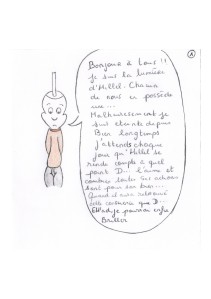 ①
Bonjour à tous !!
je suis la lumière
d'Hillel. Chacun
de nous en possède
une...
Malheureusement je
suis éteinte depuis
Bien longtemps
j'attends chaque
jour qu'Hillel se
rende compte à quel
point D... l'aime et
combien toutes ses actions
sont pour son bien...
Quand il aura
que D...
Et là je pourrai enfin
Briller